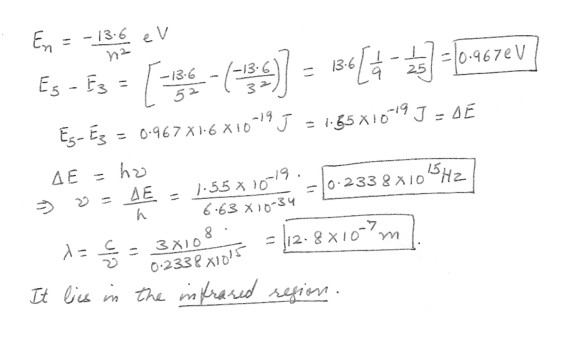 En = -13.6/n² eV
E5 - E3 = [-13.6/5² - (-13.6/3²)] = 13.6[1/9 - 1/25] = 0.967eV
E5 - E3 = 0.967 X1.6 X10^-19 J = 1.55 X10^-19 J = ΔE
ΔE = hν
⇒ ν = ΔE/h = 1.55 X 10^-19 / 6.63 X 10^-34 = 0.2338 X10^15 Hz
λ = c/ν = 3X10^8 / 0.2338 X10^15 = 12.8 X 10^-7 m.
It lies in the infrared region.